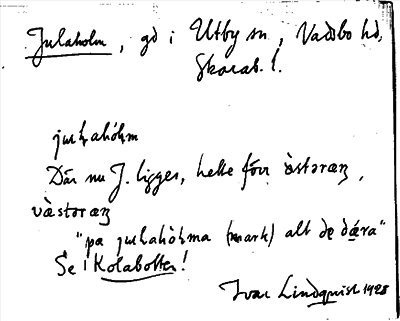 Julaholm, gd i Utby sn, Vadsbo hd,
Skarab. l.
juɽahóɽm
Där nu J. ligger, hette förr òstəræŋ,
væ̀stəræŋ
"pa juɽahòɽma (mark) alt dę dǽra"
Se i Kolabotten!
Ivar Lindquist 1928